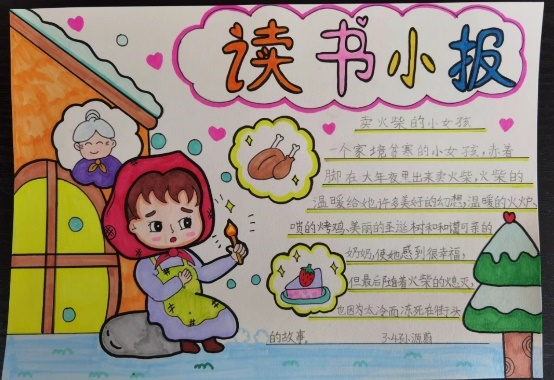 读书小报
卖火柴的小女孩
一个家境贫寒的小女孩,赤着
脚在大年夜里出来卖火柴,火柴的
温暖给她许多美好的幻想,温暖的火炉、
喷的烤鸡、美丽的圣诞树和和蔼可亲的
奶奶,使她感到很幸福,
但最后随着火柴的熄灭,
也因为太冷而冻死在街头
的故事。
3.4孙源蔚